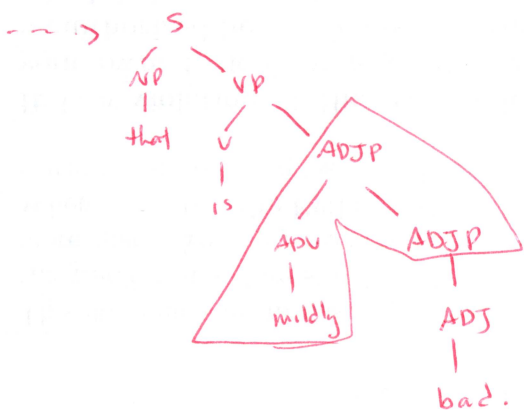 S
NP VP
that V ADJP
is
ADV ADJP
mildly ADJ
bad.